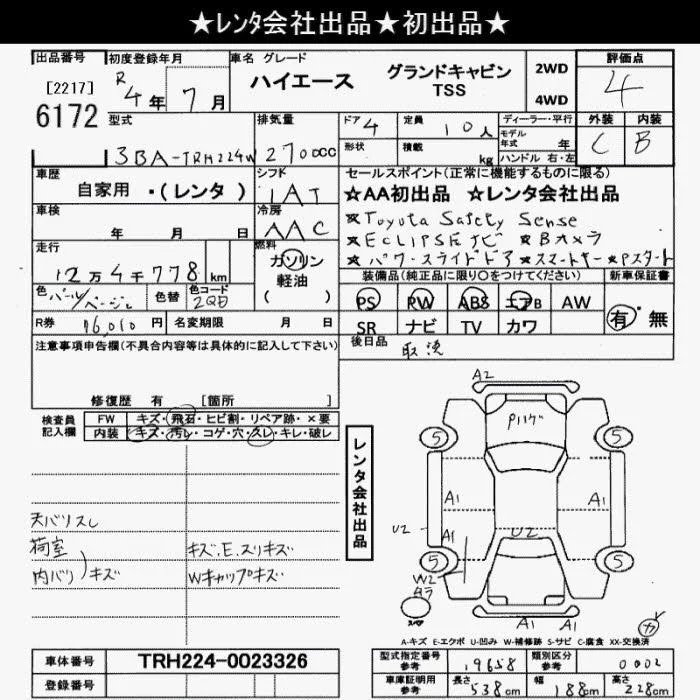 ★レンタ会社出品★初出品★
出品番号 初度登録年月 車名 グレード 評価点
[2217]
6172
R 4年 7月
ハイエース
グランドキャビン
TSS
2WD
4WD
4
型式 排気量 ドア 4 定員 10人 ディーラー・平行 外装 内装
3BA-TRH224W 2700cc
形状 積載 kg
モデル年式 年
ハンドル 右・左
C B
車歴 シフト セールスポイント(正常に機能するものに限る)
自家用 ・(レンタ)
IAT
☆AA初出品 ☆レンタ会社出品
車検 年 月 日
冷房
AAC
★Toyota Safety Sense
★ECLIPSEナビ ★Bカメラ
★パワースライドドア ★スマートキー ★Pスタート
走行
12万4千778km
燃料
ガソリン
軽油
( )
装備品(純正品に限り○をつけてください) 新車保証書
色 パール/ベージュ 色替 色コード 2QD
PS PW ABS エアB AW
SR ナビ TV カワ
有・無
R券 16,010円 名変期限 月 日
後日品 取説
注意事項申告欄(不具合内容等は具体的に記入して下さい)
修復歴 有 [箇所 ]
検査員記入欄
FW キズ・飛石・ヒビ割・リペア跡・×要
内装 キズ・汚レ・コゲ・穴・スレ・キレ・破レ
レンタ会社出品
天バリスレ
荷室
内バリ)キズ
キズ、E、スリキズ
Wキャップキズ
A2
Pハゲ
5 5
A1 A1
U2 A1 U2
5 5
W2
A1 A1
スペア
A-キズ E-エクボ U-凹み W-補修跡 S-サビ C-腐食 XX-交換済
車体番号 TRH224-0023326
登録番号
型式指定番号 参考 19658 類別区分 参考 0002
車庫証明用 参考 長さ 538cm 幅 188cm 高さ 228cm